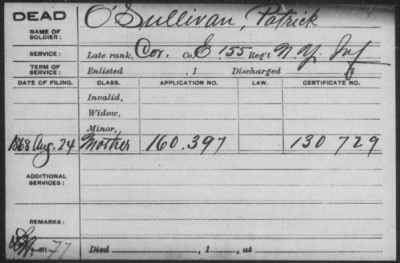 DEAD
NAME OF SOLDIER: O'Sullivan, Patrick
SERVICE: Late rank, Cor. Co. E, 155 Reg't N.Y. Inf
TERM OF SERVICE: Enlisted , 1 Discharged
DATE OF FILING. CLASS. APPLICATION NO. LAW. CERTIFICATE NO.
Invalid,
Widow,
Minor,
1868 Aug. 24 Mother 160,397 130 729
ADDITIONAL SERVICES:
REMARKS:
77 Died , 1 , at